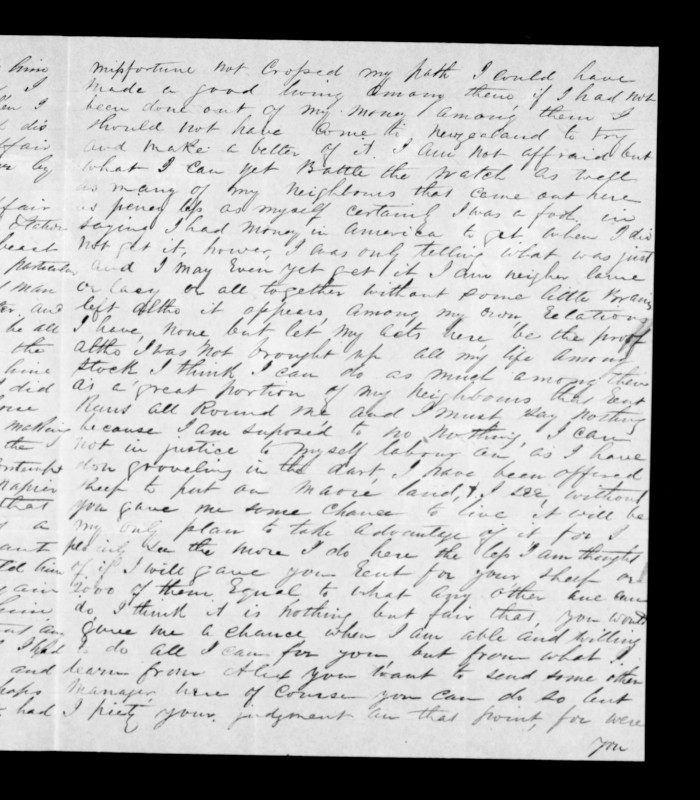 misfortune not Crossed my path I could have
Made a good living Among them if I had not
been done out of my money Among them I
Should not have Come to Newzeeland to try
and make a better of it. I Am not affraid but
what I can yet Battle the Watch as well
as many of my Neighbours that came out here
as penny less as myself certainly I was a fool in
saying I had money in America to get when I did
Not get it, however, I was only telling what was just
and I may Even yet get it I am neigher lame
or lasy or all together without some little Brains
left altho it appears among my own Relations
I have none but let my acts here be the proof
altho I was Not brought up all my life among
Stock I think I can do as much among them
as a great portion of my Neighbours that out
Runs all Round me and I must say nothing
because I am suposed to no nothing, I can
not in justice to myself labour on as I have
don groveling in the dart, I have been offered
sheep to put on Maorie land, & I see, without
you gave me some Chance to live, it will be
my only plan to take advantage of it for I
plainly See the more I do here the less I am thought
of if I will gave you Rent for your sheep or
2000 of them Equal to what any other one can
do, I think it is nothing but fair that you would
gave me a chance when I am able and willing
to do all I can for you but from what I
learn from Alex you want to send some other
Manager here of Course you can do so but
I piety your judgment on that point, for were
you
him
I
did
fair
by
fair
particular
man
and
be all
the
did
the
Contempt
Napier
that
a
told him
again
I had
and
had